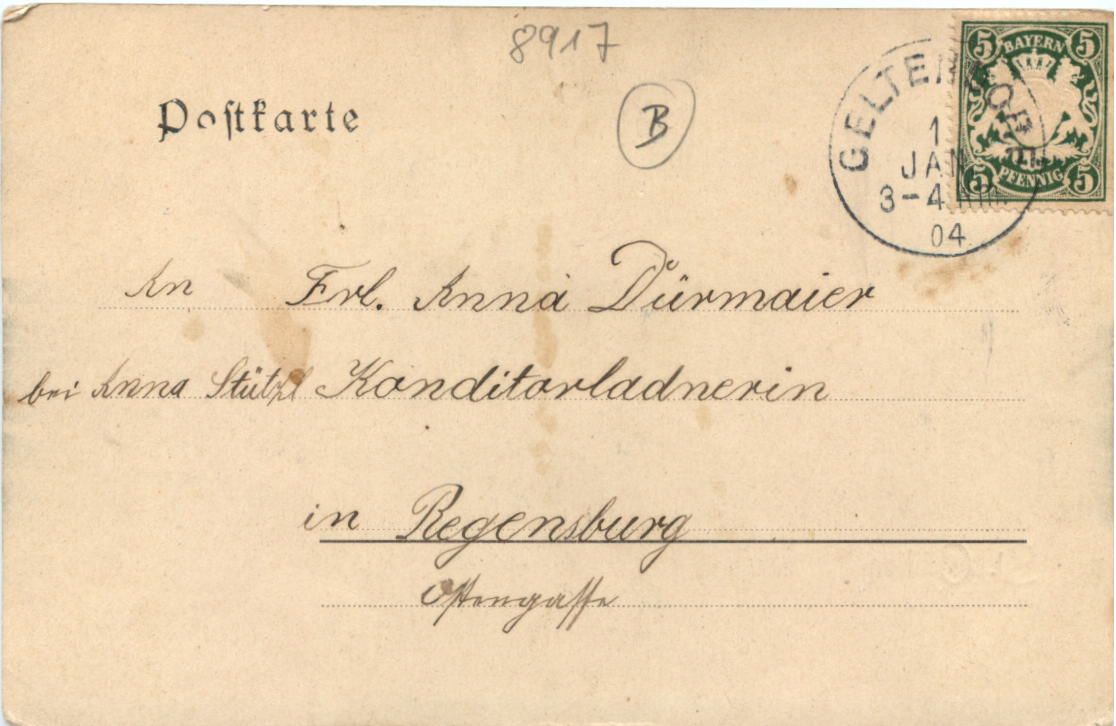 8917
Postkarte
B
GELTENDORF
1
JAN
3-4 Nm.
04
5 BAYERN 5
5 PFENNIG 5
An Frl. Anna Dürmaier
bei Anna Stützl Konditorladnerin
in Regensburg
Ostengasse